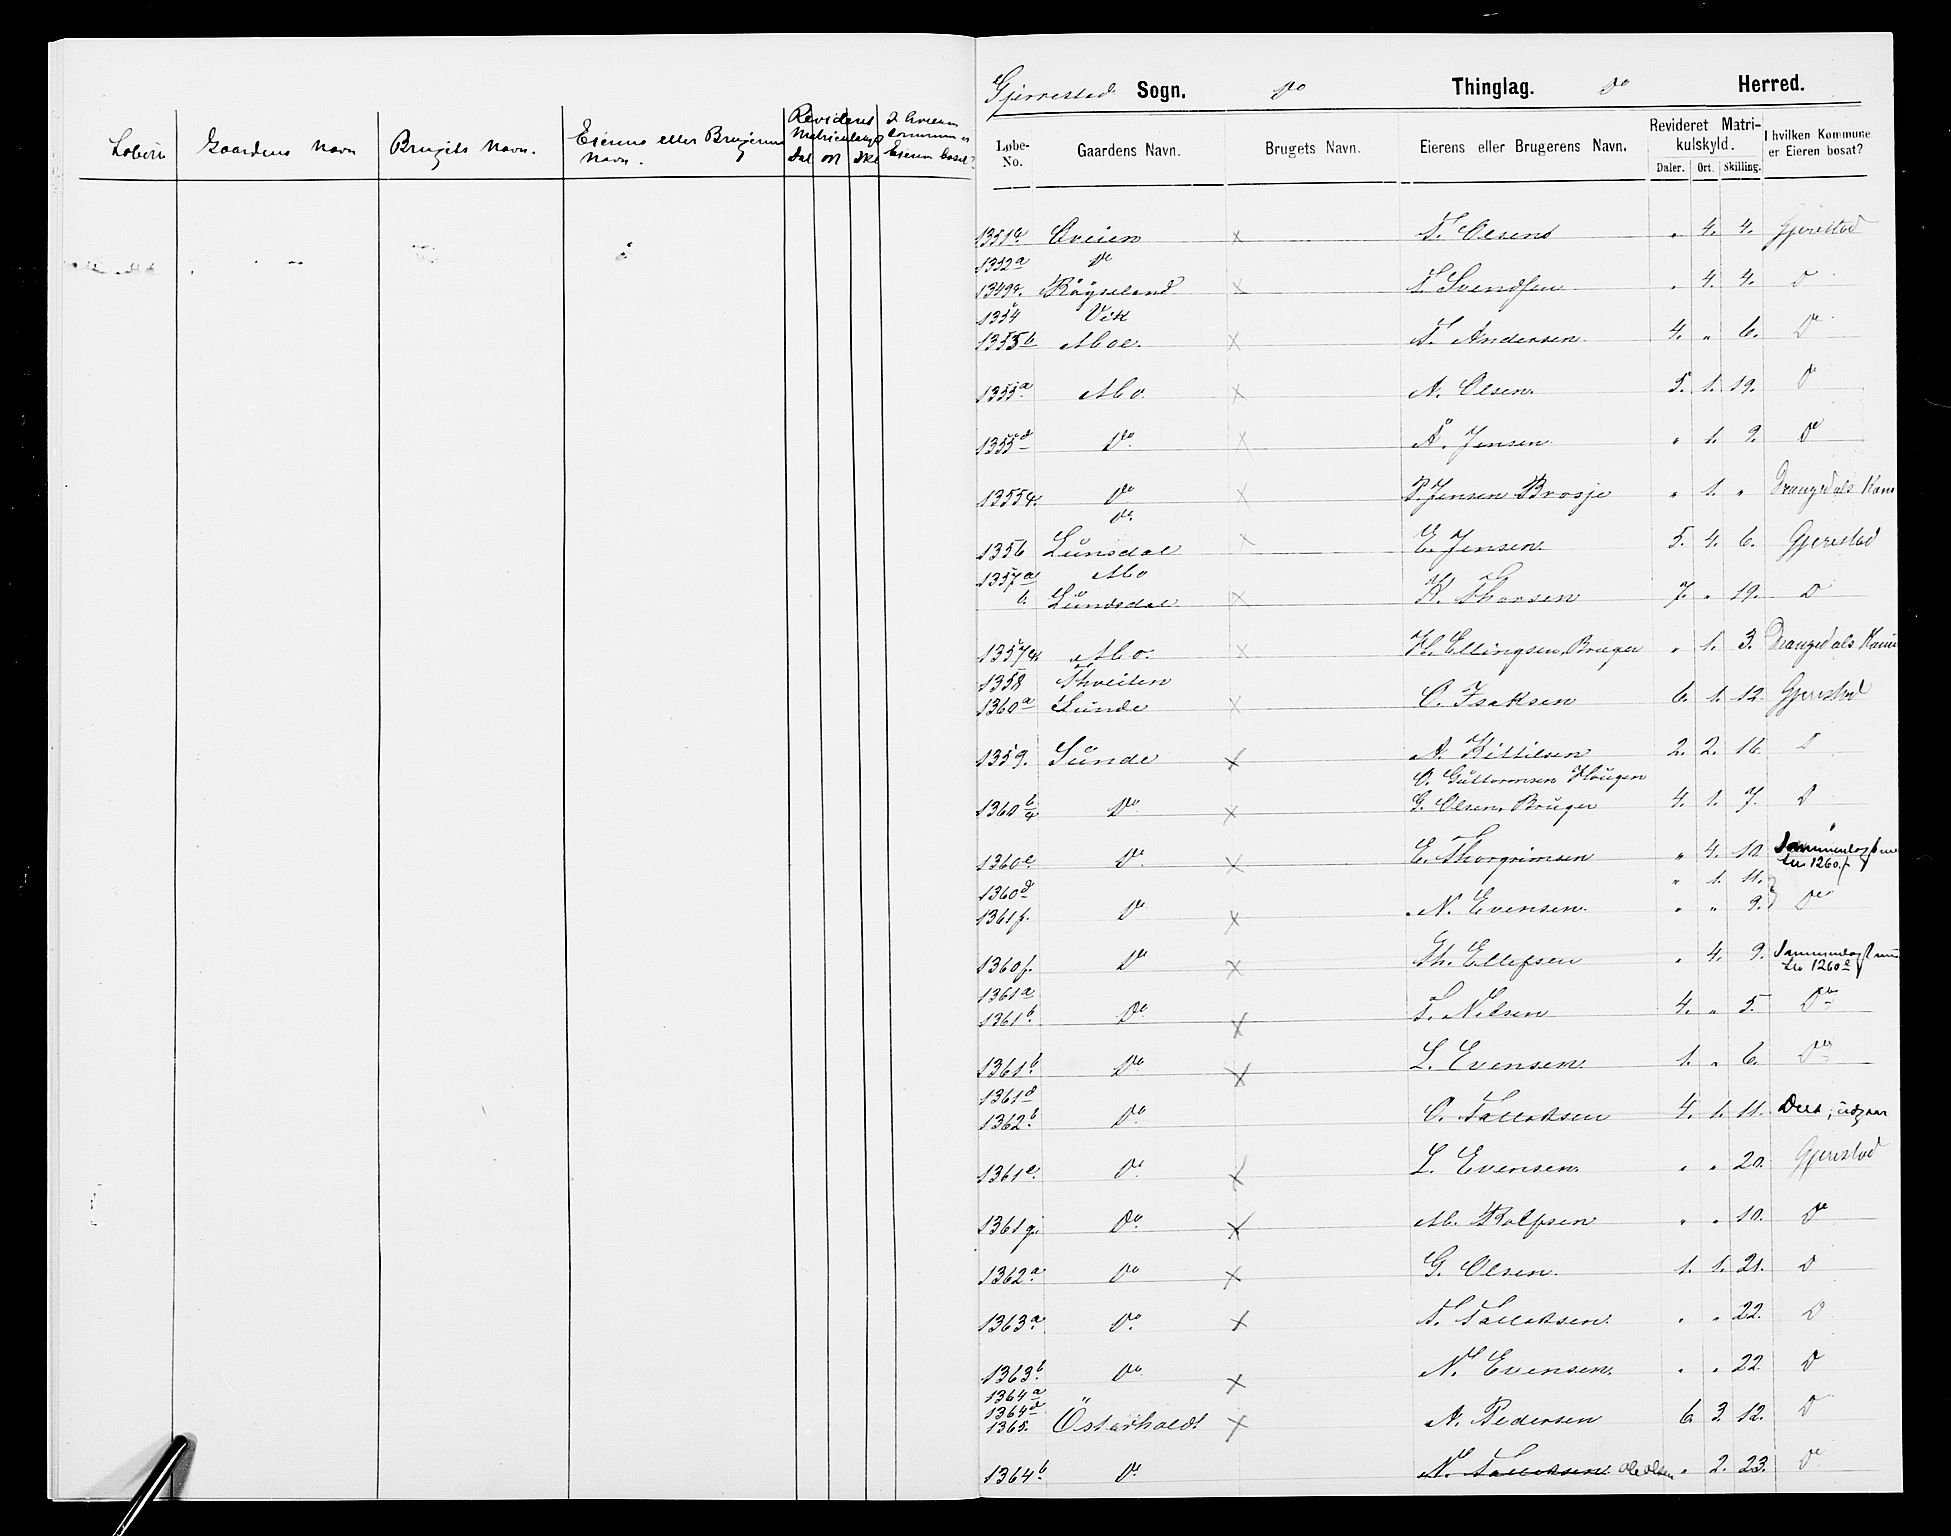 Løbenr Gaardens Navn Brugets Navn. Eierens eller Brugerens Navn. Revideret Matriculskyld Dal ort Skl I hvilken Commune er Eieren bosat?
Gjerrestad Sogn. Do Thinglag. Do Herred.
Løbe-No. Gaardens Navn. Brugets Navn. Eierens eller Brugerens Navn. Revideret Matrikulskyld. Daler. Ort. Skilling. I hvilken Kommune er Eieren bosat?
1351a Eveien x T. Olsens " 4. 4. Gjerestad
1352a Do
1349a. Røysland x T. Svendsen " 4. 4. D
1354 Vik
1355b Moe. x T. Andersen 4. " 6. Do
1355a Mo x A. Olsen. 5. 1. 19. Do
1355d Do x A. Jensen. " 1. 9. Do
1355c. Do x P. Jensen Brosje " 1. " Drangedals Kom
Do.
1356 Lunsdal x E. Jensen. 5. 4. 6. Gjerestad
1357a Mo
b. Lundsdal x K. Thorsen 7. " 19. D
1357c. Mo. x H. Ellingsen, Bruger " 1. 3. Drangedals Kom
1358 Thveiten
1360a Sunde x O. Isaksen 6. 1. 12 Gjerestad
1359. Sunde x A. Kittilsen 2. 2. 16. D
O. Guttormsen Hougen
1360b/c Do x G. Olsen, Bruger 4. 1. 7. D
1360e. Do x E. Thorgrimsen " 4. 10. Sammenlagt med Lno 1260f
1360d " 1. 11.
1361f. Do x N. Evensen. " " 9. Do
1360f. Do x Th. Ellefsen " 4. 9. Sammenlagt med Lno 1260e
1361a
1361b. Do x T. Nilsen 4. " 5. Do
1361b Do x L. Evensen. 1. " 6. Do
1361d
1362b Do. O. Tallaksen 4. 1. 11. Død, udgaar
1361e. Do x L. Evensen. " " 20. Gjerestad
1361g. Do x M. Rolfsen " " 10. Do
1362a. Do x G. Olsen. 1. 1. 21. D
1363a. Do. x T. Tallaksen. " " 22. D
1363b. Do x N. Evensen. " " 22. D
1364a
1364d
1365. Österholdt x A. Pedersen 6. 3. 12. D
1364b Do N. Tallaksen. Ole Olsen " 2. 23. Do